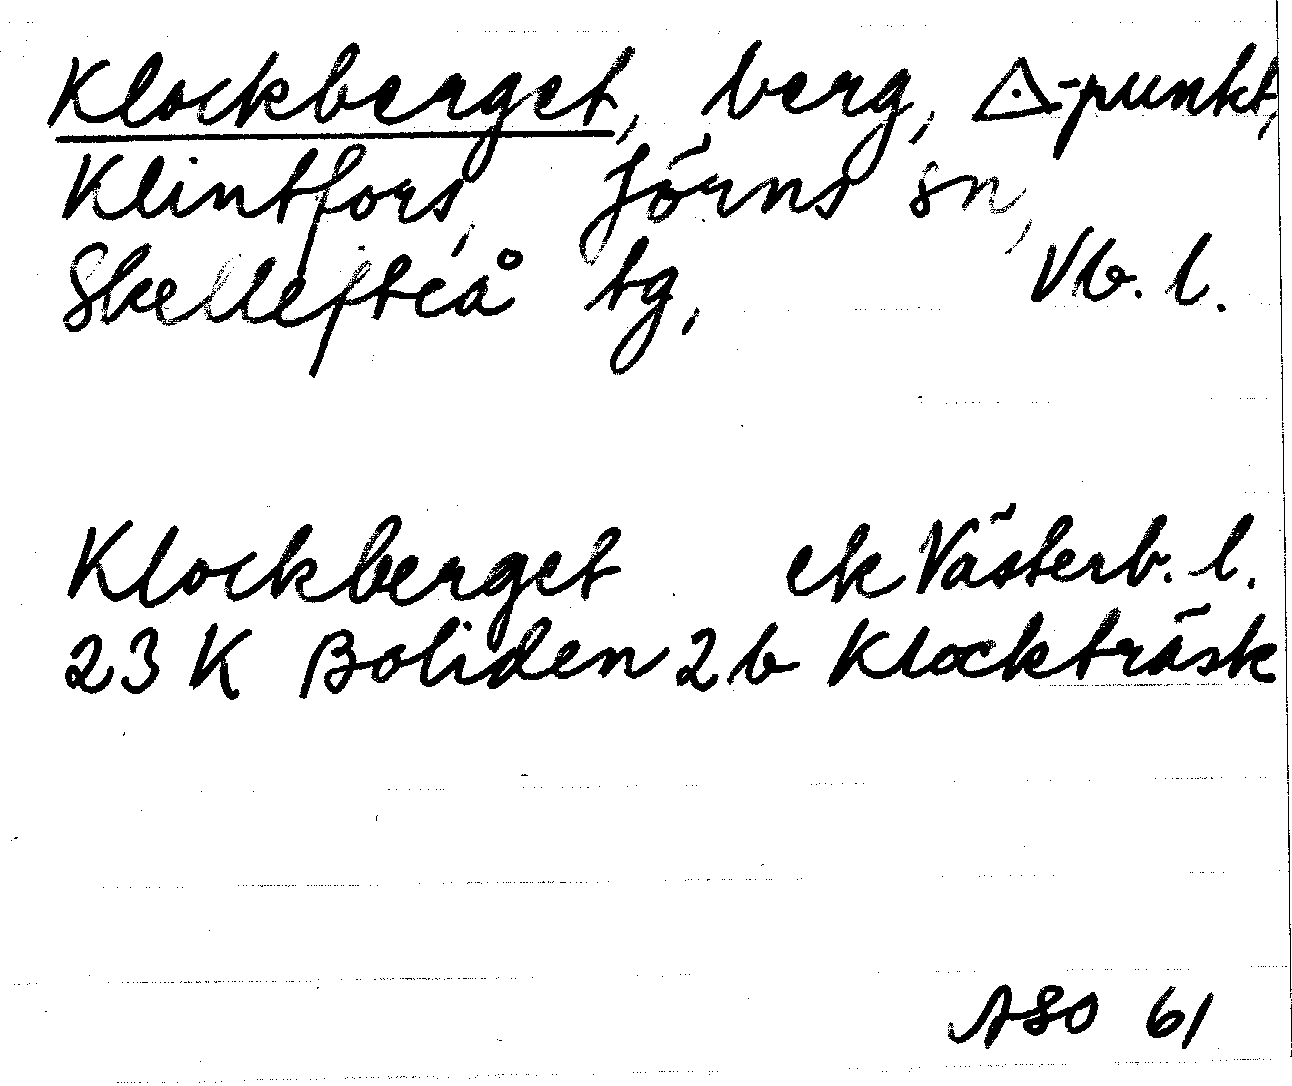 Klockberget, berg, △-punkt,
Klintfors, Jörns sn,
Skellefteå tg, Vb. l.
Klockberget ek Västerb. l.
23 K Boliden 2b Klockträsk
ASO 61